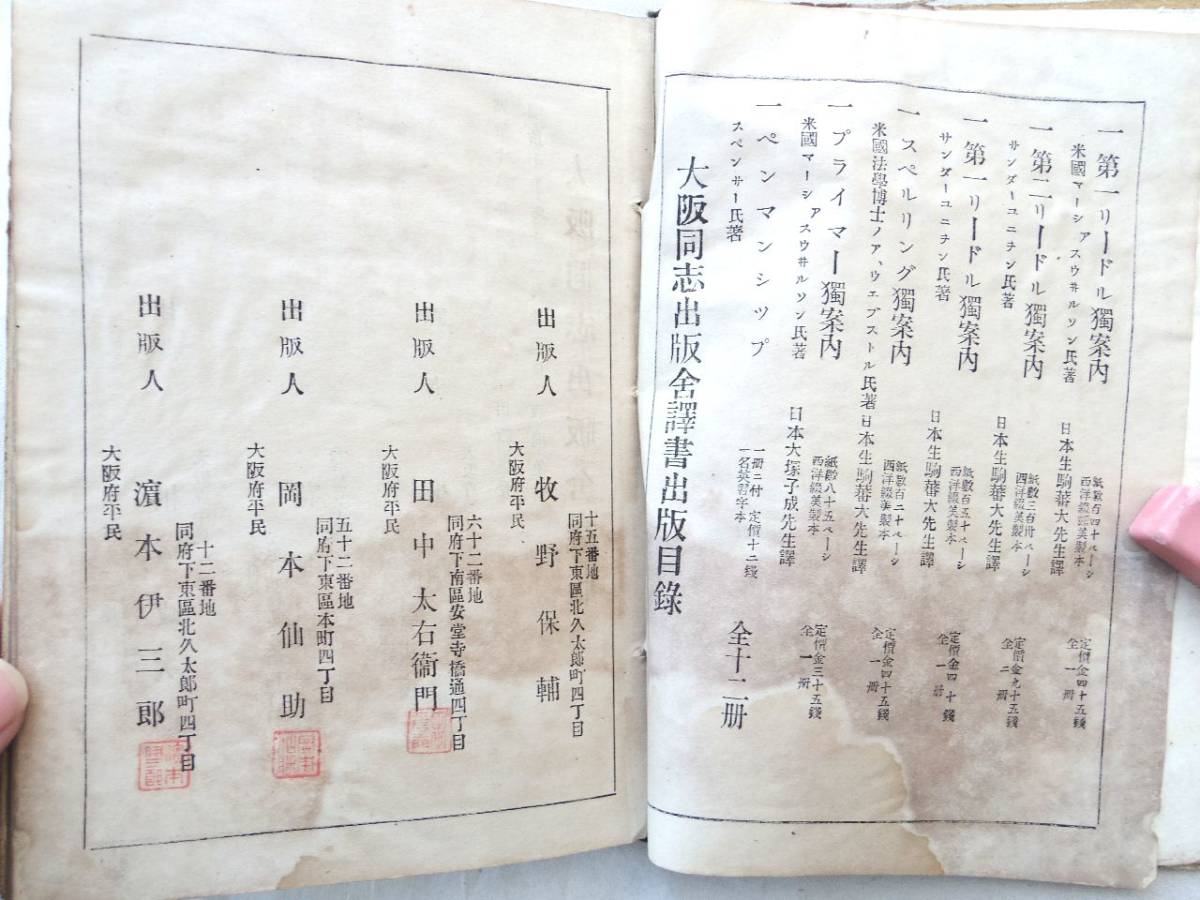 一 第一リードル獨案内
米國マーシアスウ井ルソン氏著
日本生駒蕃大先生譯
紙數百四十ページ
西洋綴美製本
定價金四十五錢
全一冊
一 第二リードル獨案内
サンダーユニヲン氏著
日本生駒蕃大先生譯
紙數三百卅ページ
西洋綴美製本
定價金九十五錢
全二冊
一 第一リードル獨案内
サンダーユニヲン氏著
日本生駒蕃大先生譯
紙數百五十ページ
西洋綴美製本
定價金四十錢
全一冊
一 スペルリング獨案内
米國法學博士ノア、ウエブストル氏著
日本生駒蕃大先生譯
紙數百二十ページ
西洋綴美製本
定價金四十五錢
全一冊
一 プライマー獨案内
米國マーシアスウ井ルソン氏著
日本大塚子成先生譯
紙數八十五ページ
西洋綴美製本
定價金三十五錢
全一冊
一 ペンマンシツプ
スペンサー氏著
一冊ニ付 定價十二錢
一名英習字本
全十二冊
大阪同志出版舍譯書出版目錄
出版人 牧野保輔
大阪府平民
十五番地
同府下東區北久太郎町四丁目
出版人 田中太右衞門
大阪府平民
六十二番地
同府下南區安堂寺橋通四丁目
出版人 岡本仙助
大阪府平民
五十二番地
同府下東區本町四丁目
出版人 濵本伊三郎
大阪府平民
十二番地
同府下東區北久太郎町四丁目